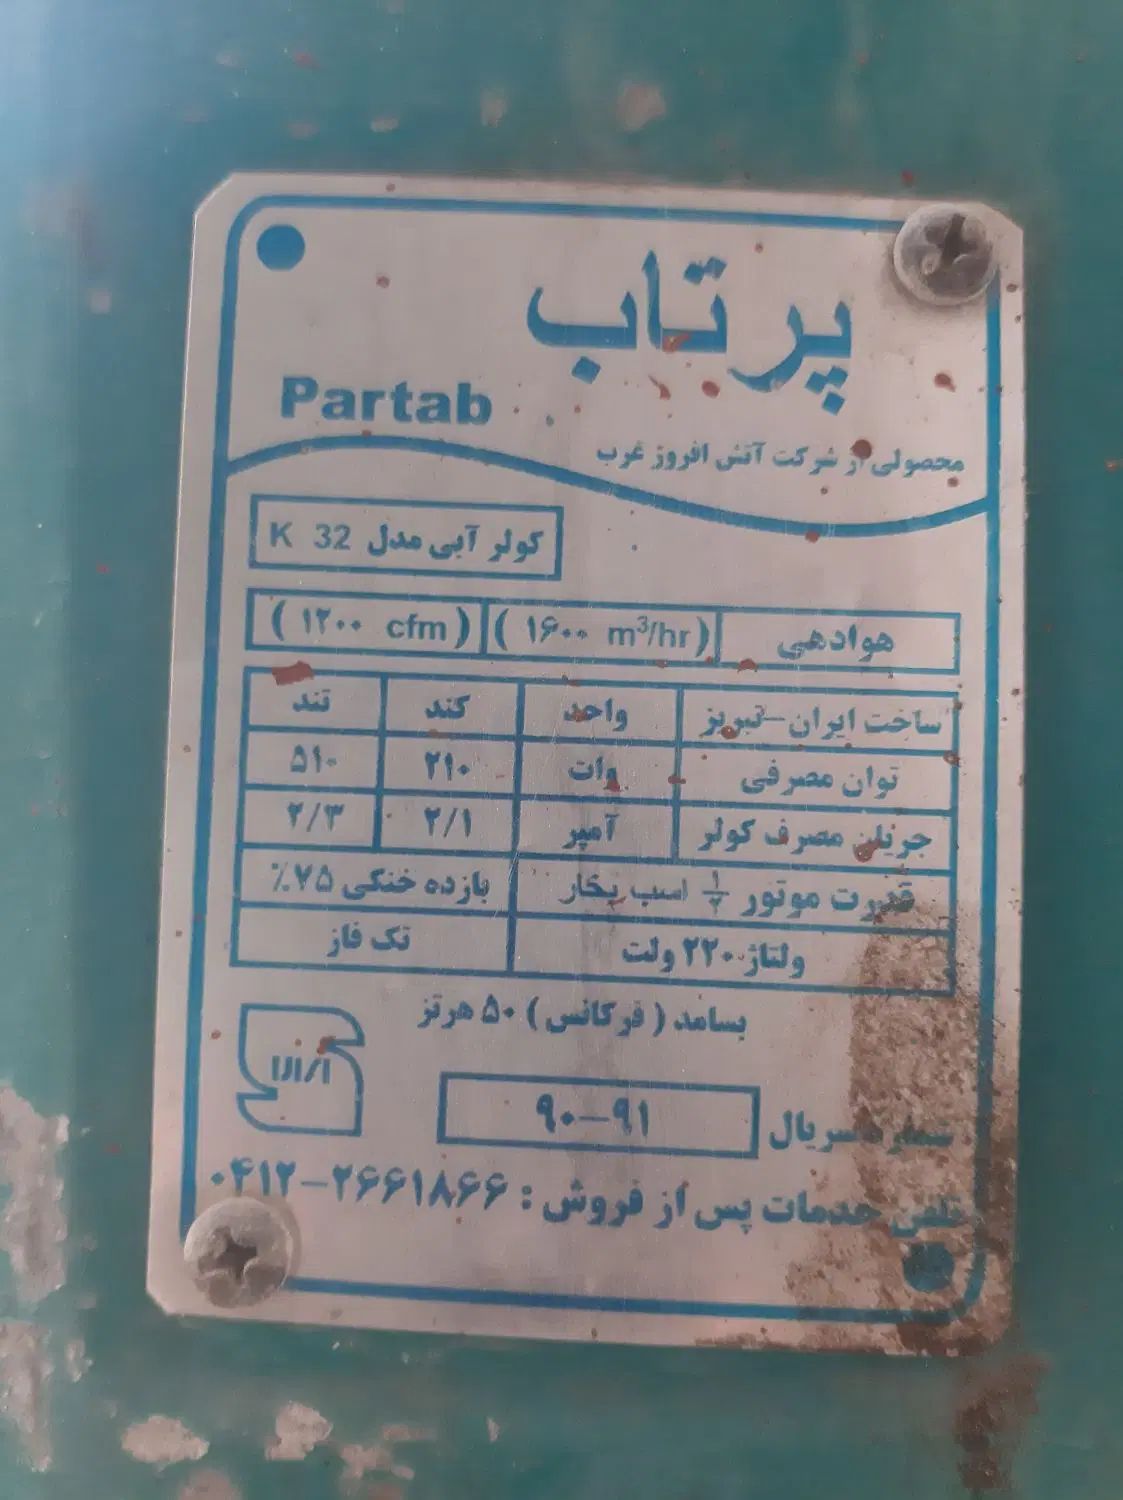 پرتاب
Partab
محصولی از شرکت آتش افروز غرب
کولر آبی مدل K 32
هوادهی (۱۶۰۰ m³/hr) (۱۲۰۰ cfm)
ساخت ایران-تبریز واحد کند تند
توان مصرفی وات ۲۱۰ ۵۱۰
جریان مصرف کولر آمپر ۲/۱ ۲/۳
قدرت موتور ۱/۲ اسب بخار بازده خنکی ۷۵٪
ولتاژ ۲۲۰ ولت تک فاز
بسامد (فرکانس) ۵۰ هرتز
شماره سریال ۹۰-۹۱
تلفن خدمات پس از فروش : ۰۴۱۲-۲۶۶۱۸۶۶